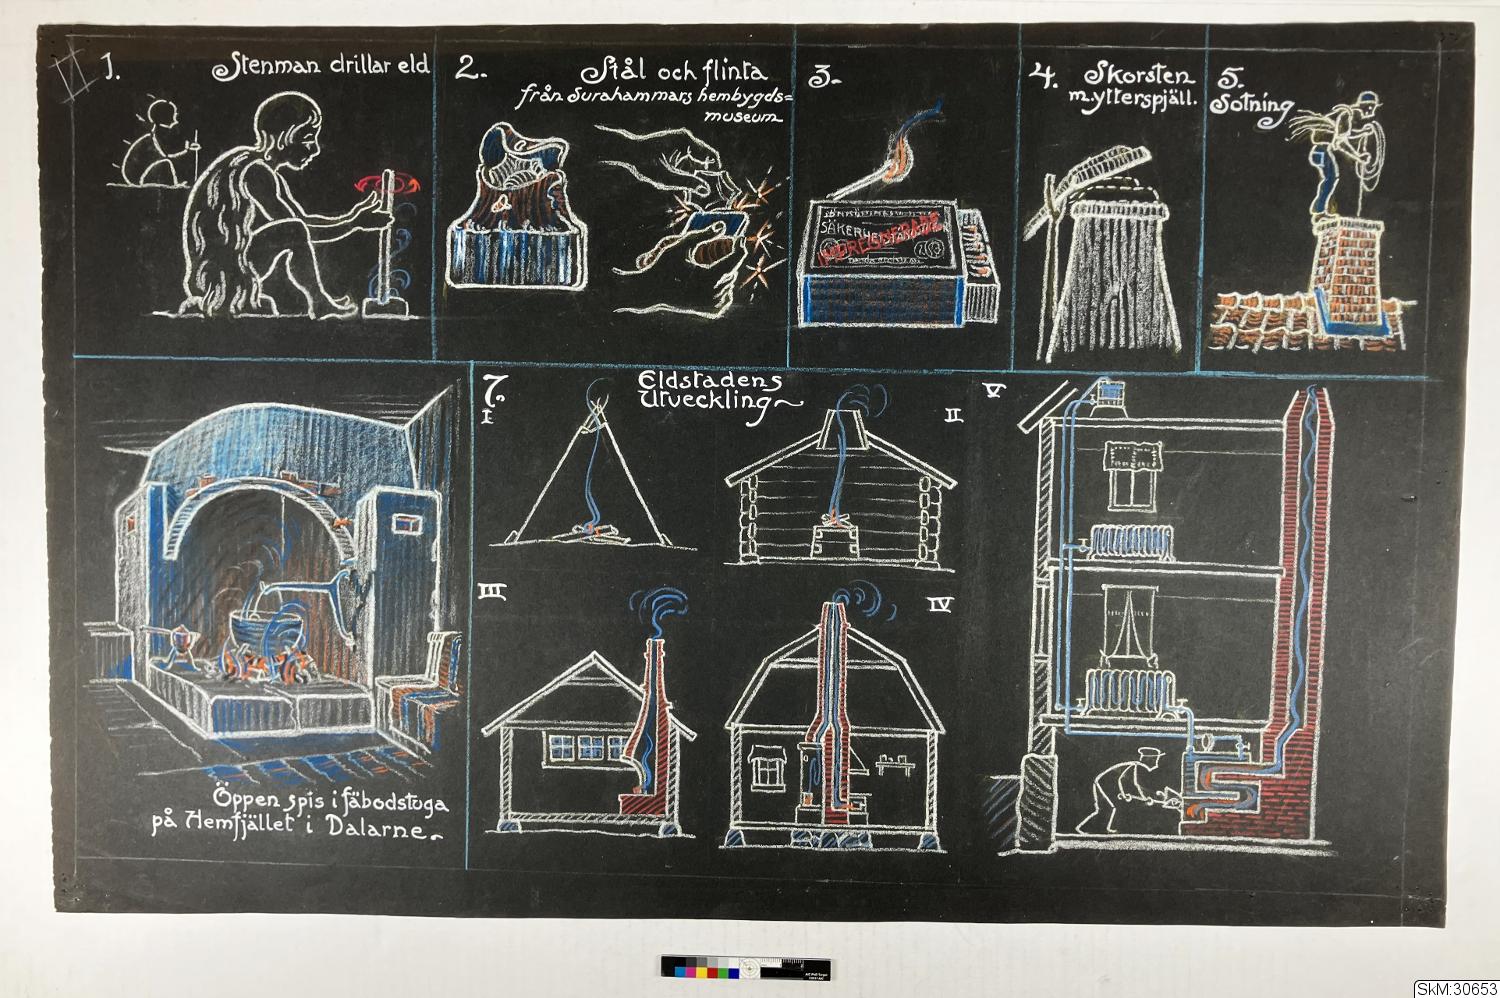 1. Stenman drillar eld
2. Stål och flinta
från Surahammars hembygds=
museum
3.
SÄKERHETS
IMPREGNERADE
4. Skorsten
m. ytterspjäll.
5.
Sotning
Öppen spis i fäbodstuga
på Hemfjället i Dalarne.
7. Eldstadens
Utveckling
I
II
III
IV
V
SkM:30653